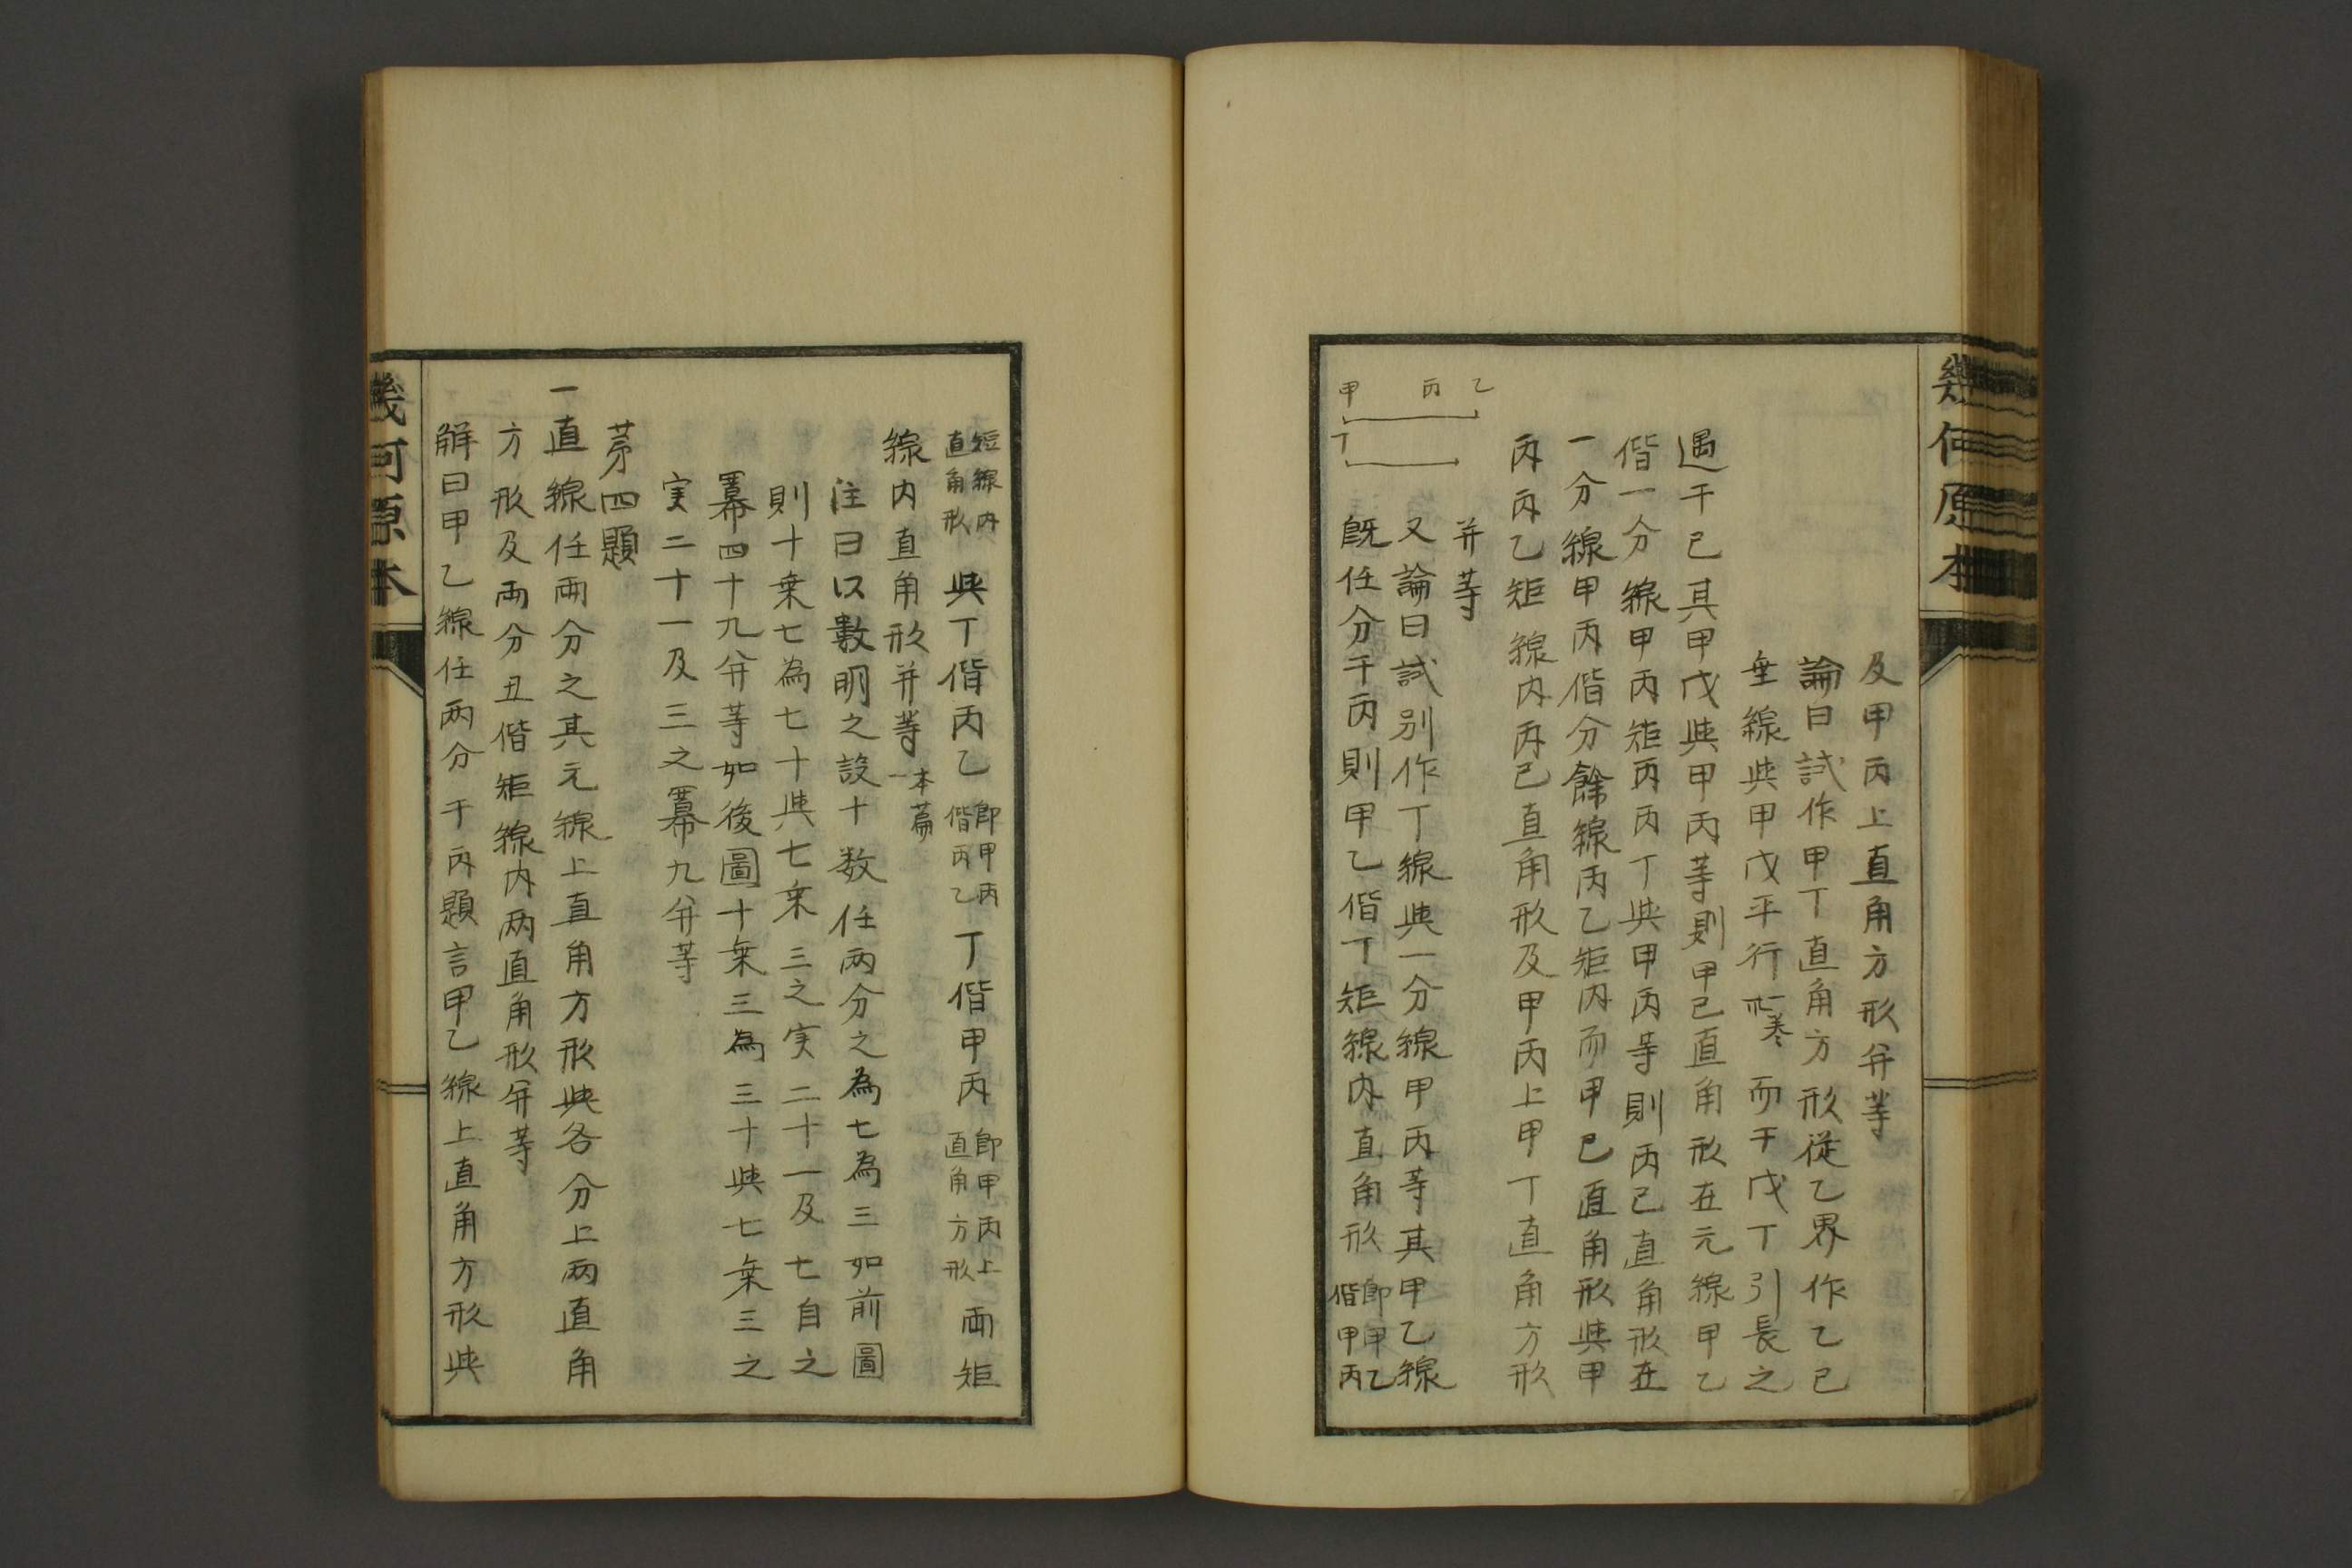 幾何原本
及甲丙上直角方形并等
論曰試作甲丁直角方形從乙界作乙己
垂線與甲戊平行一卷而于戊丁引長之
遇于己其甲戊與甲丙等則甲己直角形在元線甲乙
偕一分線甲丙矩丙丙丁與甲丙等則丙己直角形在
一分線甲丙偕分餘線丙乙矩内而甲己直角形與甲
丙丙乙矩線内丙己直角形及甲丙上甲丁直角方形
并等
甲 丙 乙
丁
又論曰試别作丁線與一分線甲丙等其甲乙線
既任分于丙則甲乙偕丁矩線内直角形即甲乙偕甲丙
短線内直角形與丁偕丙乙即甲丙偕丙乙丁偕甲丙即甲丙上直角方形兩矩
線内直角形并等本篇一
注曰以數明之設十数任兩分之為七為三如前圖
則十乗七為七十與七乗三之実二十一及七自之
冪四十九并等如後圖十乗三為三十與七乗三之
実二十一及三之冪九并等
苐四題
一直線任兩分之其元線上直角方形與各分上兩直角
方形及兩分丑偕矩線内兩直角形并等
解曰甲乙線任兩分于丙題言甲乙線上直角方形與
幾何原本